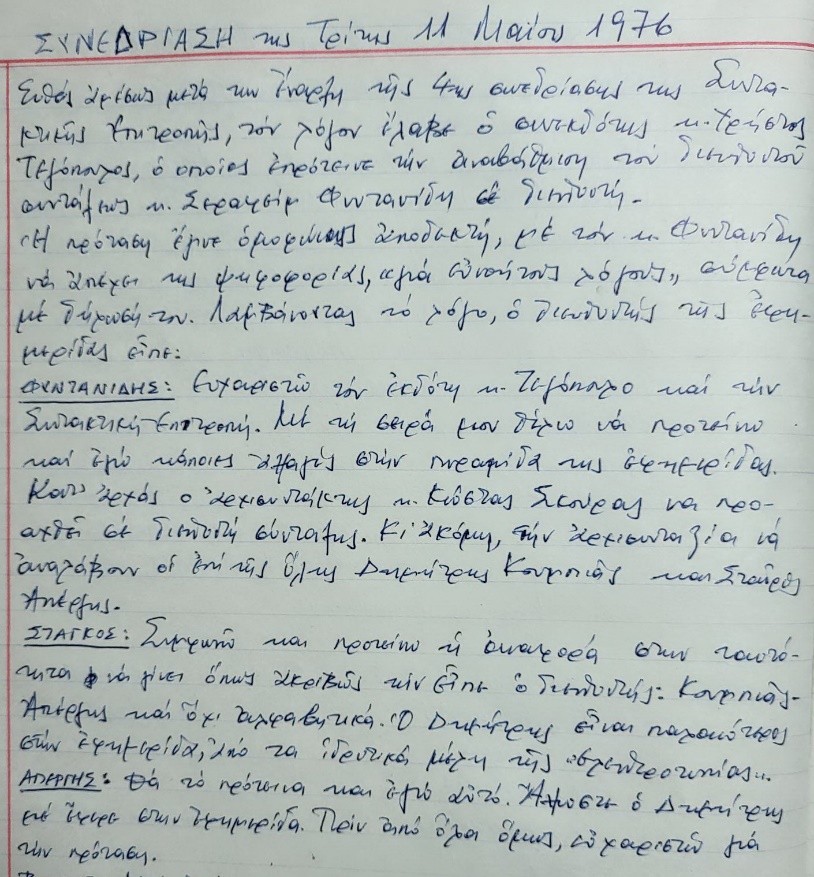 ΣΥΝΕΔΡΙΑΣΗ της Τρίτης 11 Μαΐου 1976
Ευθύς ἀμέσως μετά την ἔναρξη τῆς 4ης συνεδρίασης της Συντα-
κτικῆς Ἐπιτροπῆς, τόν λόγον ἔλαβε ὁ συνεκδότης κ. Χρῆστος
Τεγόπουλος, ὁ οποίος ἐπρότεινε τήν ἀναβάθμιση τοῦ διευθυντοῦ
συντάξεως κ. Σεραφείμ Φυντανίδη σέ διευθυντή.
Ἡ πρόταση ἔγινε ὁμοφώνως ἀποδεκτή, μέ τόν κ. Φυντανίδη
νά ἀπέχει της ψηφοφορίας, «γιά εὐνοήτους λόγους», σύμφωνα
μέ δήλωσή του. Λαμβάνοντας τό λόγο, ὁ διευθυντής τῆς ἐφη-
μερίδας εἶπε:
ΦΥΝΤΑΝΙΔΗΣ: Ευχαριστῶ τόν ἐκδότη κ. Τεγόπουλο καί τήν
Συντακτική Επιτροπή. Μέ τή σειρά μου θέλω νά προτείνω
καί ἐγώ κάποιες ἀλλαγές στήν πυραμίδα της ἐφημερίδας.
Κατ' ἀρχάς ο ἀρχισυντάκτης κ. Κώστας Σκούρας να προ-
αχθεῖ σέ διευθυντή σύνταξης. Κι ἀκόμη, τήν ἀρχισυνταξία νά
ἀναλάβουν οἱ ἐπί τῆς ὕλης Δημήτρης Κουμπιᾶς και Σταῦρος
Ἀπέργης.
ΣΤΑΓΚΟΣ: Συμφωνῶ και προτείνω ἡ ἀναφορά στην ταυτό-
τητα νά γίνει ὅπως ἀκριβῶς τήν εἶπε ὁ διευθυντής: Κουμπιᾶς-
Ἀπέργης καί ὄχι ἀλφαβητικά. Ὁ Δημήτρης εἶναι παλαιότερος
στήν ἐφημερίδα, ἀπό τα ἱδρυτικά μέλη τῆς «Ἐλευθεροτυπίας».
ΑΠΕΡΓΗΣ: Θά τό πρότεινα και ἐγώ αὐτό. Ἄλλωστε ὁ Δημήτρης
μέ ἔφερε στην ἐφημερίδα. Πρίν ἀπό ὅλα ὅμως, εὐχαριστῶ γιά
τήν πρόταση.